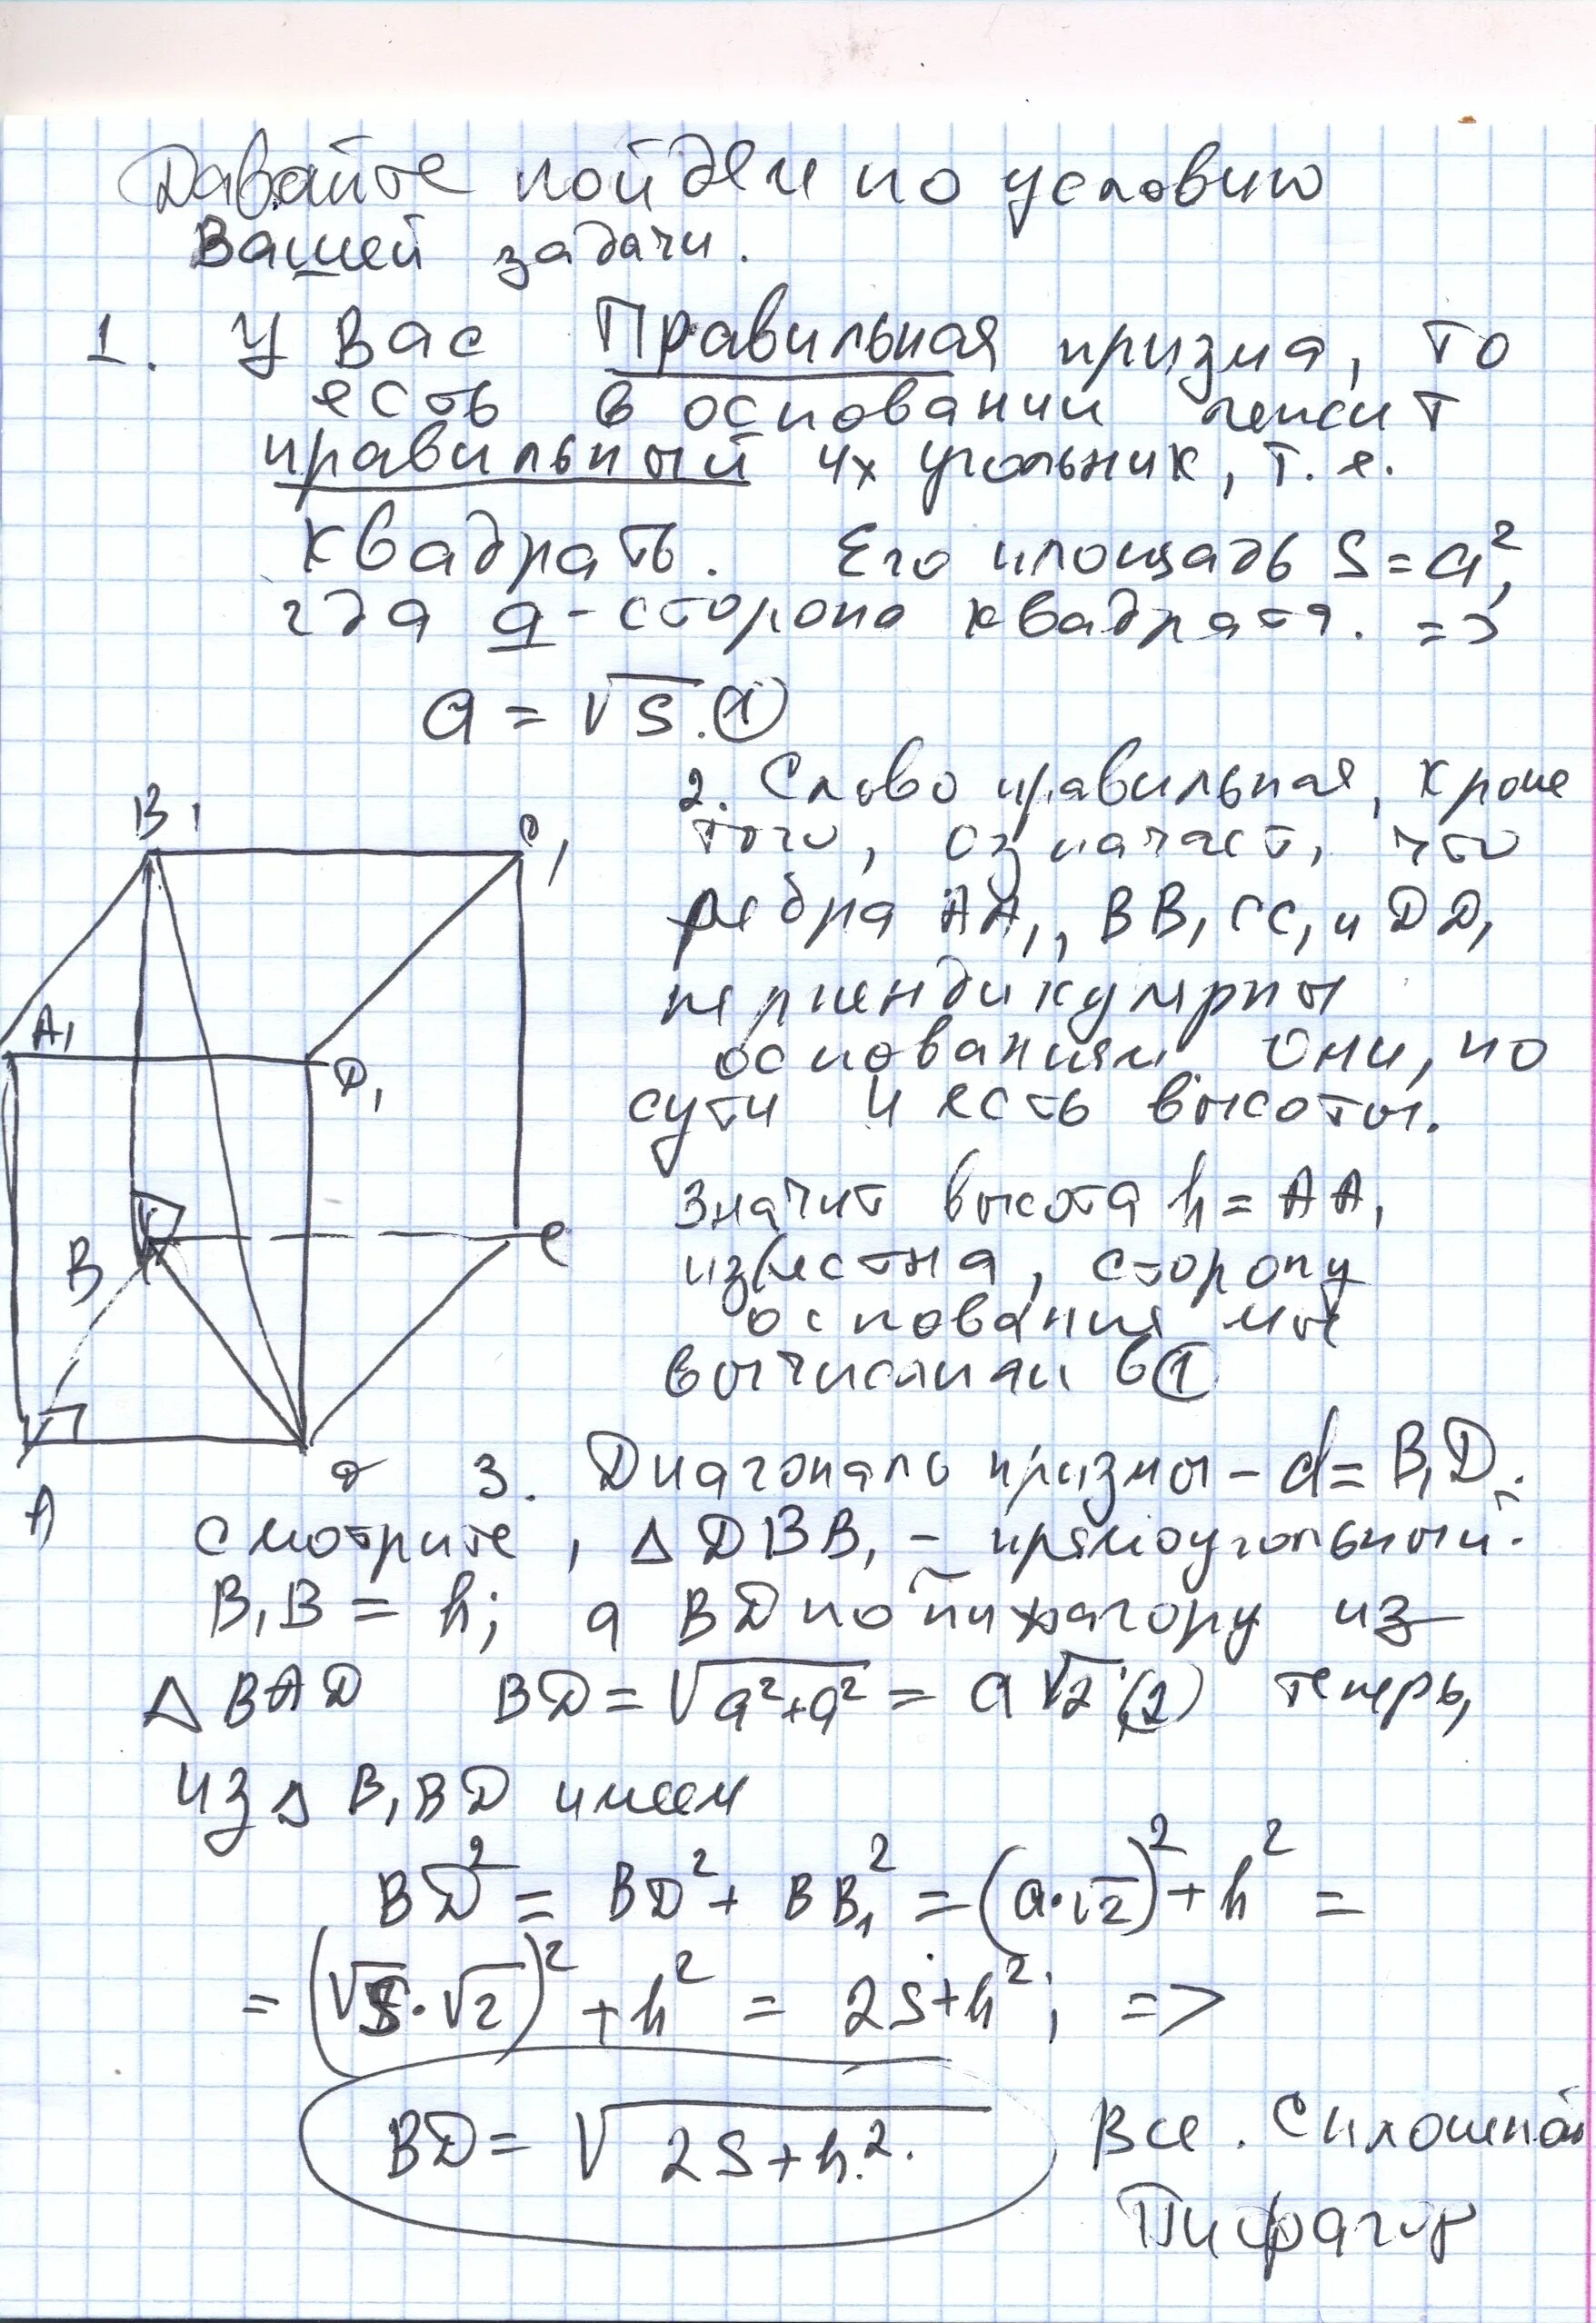 Давайте пойдем по условию
Вашей задачи.
1. У Вас Правильная призма, то
есть в основании лежит
правильный 4х угольник, т.е.
квадратъ. Его площадь S=a²,
где a - сторона квадрата. =>
a = √S. (1)
2. Слово правильная, кроме
того, означает, что
ребра AA₁, BB₁ CC₁ и DD₁
перпендикулярны
основаниям они, по
сути и есть высоты.
Значит высота h = AA₁
известна, сторону
основания мы
вычислили в (1)
B₁
C₁
A₁
D₁
B
C
D
A
3. Диагональ призмы - d = B₁D.
смотрите, △DBB₁ - прямоугольный.
B₁B = h; a BD по пифагору из
△BAD BD = √a²+a² = a√2 (2) теперь,
из △ B₁BD имеем
BD² = BD² + BB₁² = (a·√2)² + h² =
= (√S·√2)² + h² = 2S+h²; =>
BD = √2S+h².
Все. Сплошной
Пифагор